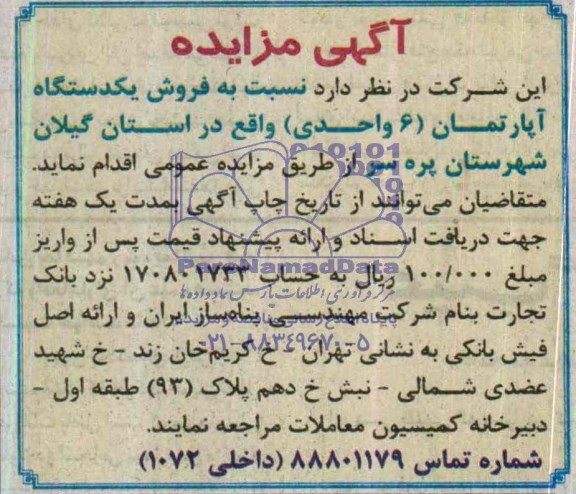 آگهی مزایده
این شرکت در نظر دارد نسبت به فروش یکدستگاه
آپارتمان (۶ واحدی) واقع در استان گیلان
شهرستان پره سر از طریق مزایده عمومی اقدام نماید.
متقاضیان می‌توانند از تاریخ چاپ آگهی بمدت یک هفته
جهت دریافت اسناد و ارائه پیشنهاد قیمت پس از واریز
مبلغ ۱۰۰/۰۰۰ ریال به حساب ۱۷۰۸۰۱۷۳۳ نزد بانک
تجارت بنام شرکت مهندسی پناه‌ساز ایران و ارائه اصل
فیش بانکی به نشانی تهران - خ کریم‌خان زند - خ شهید
عضدی شمالی - نبش خ دهم پلاک (۹۳) طبقه اول -
دبیرخانه کمیسیون معاملات مراجعه نمایند.
شماره تماس ۸۸۸۰۱۱۷۹ (داخلی ۱۰۷۲)
ParsNamadData
مرکز فرآوری اطلاعات پارس نماد داده ها
۰۲۱-۸۸۳۴۹۶۷۰-۵